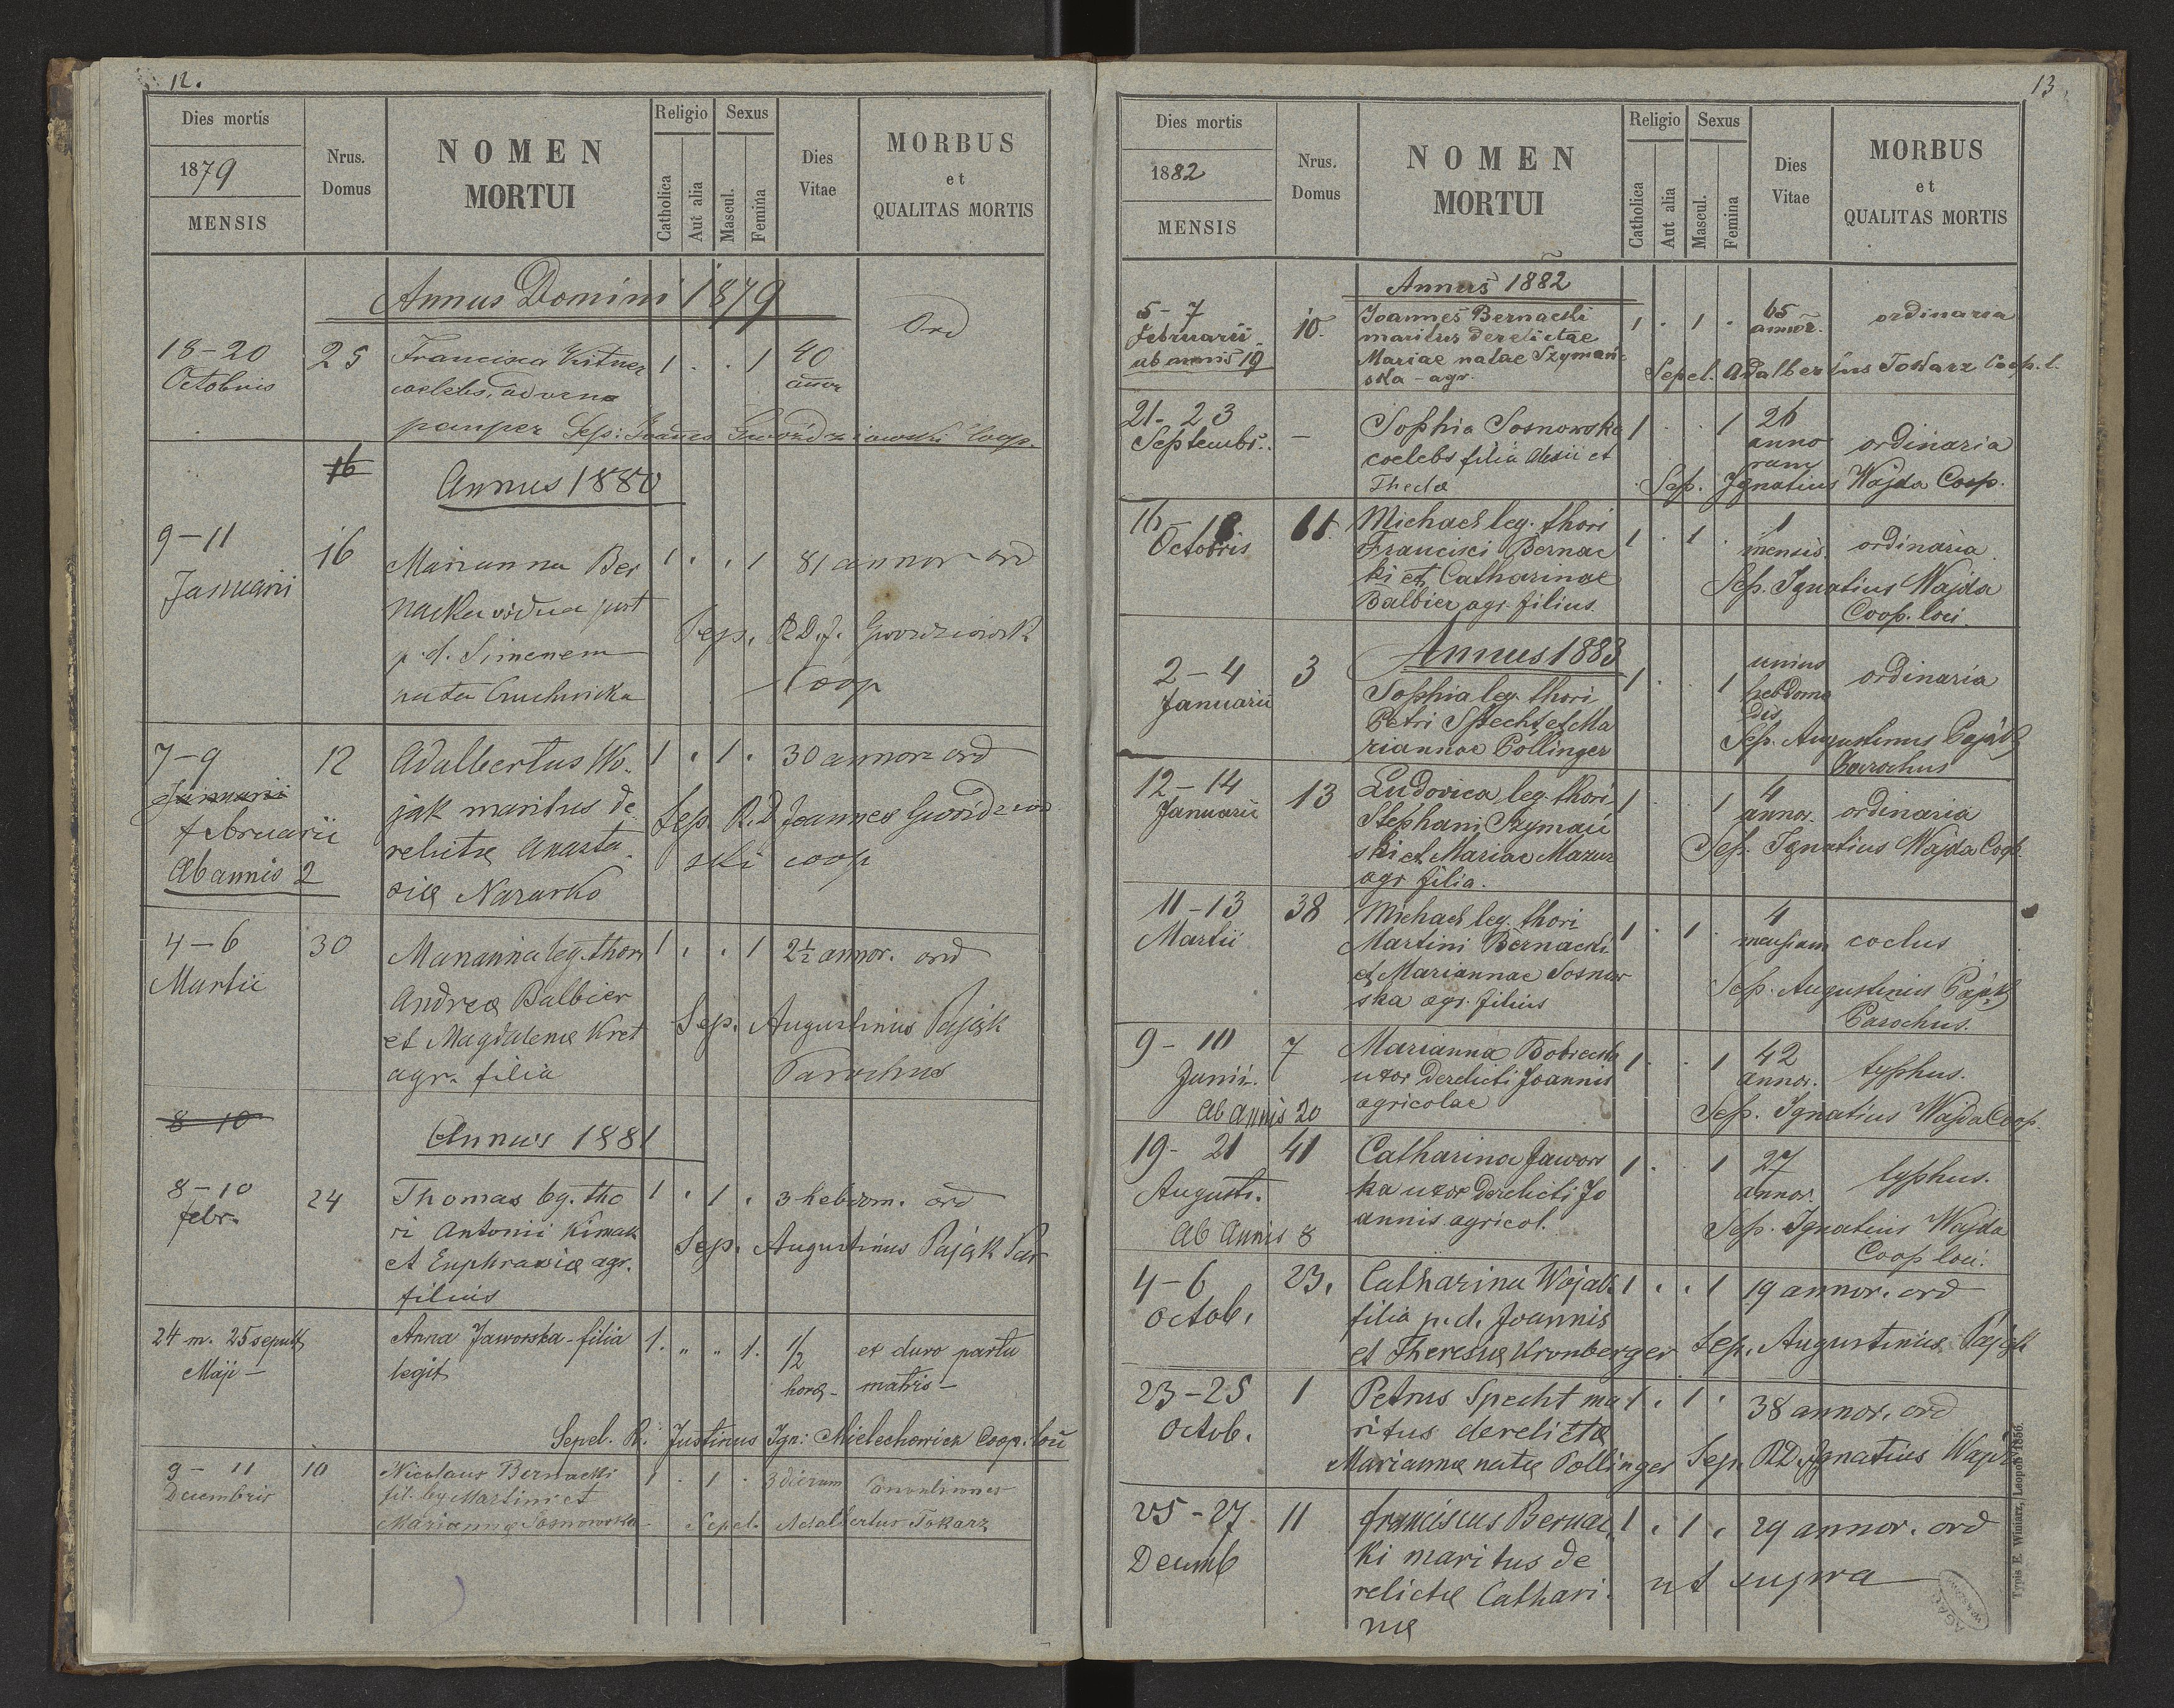 12.
Dies mortis
1879
MENSIS
Nrus. Domus
NOMEN
MORTUI
Religio
Catholica
Aut alia
Sexus
Mascul.
Femina
Dies Vitae
MORBUS
et
QUALITAS MORTIS
Annus Domini 1879
18-20 25 Francisca 1 . . 1 40 Ord
Octobris coelebs, advena annor
pauper Sep: Joannes Gwoździowski Coop
16
Annus 1880
9-11 16 Marianna Ber 1 . . 1 81 annor ord
Januarii nacka vidua post
p. d. Simenem Sep. R.D.J. Gwozdziowski
nata Coop
7-9 12 Adalbertus Wo- 1 . 1 . 30 annor ord
Januarii jak maritus de
februarii relictæ Anasta- Sep R.D Joannes Gwoździow
Ab annis 2 siæ Nazarko ski coop
4-6 30 Marianna leg. thori 1 . . 1 2½ annor. ord
Martii Andreæ Balbier
et Magdalenæ Kret Sep. Augustinus Pająk
agr. filia Parochus
8-10
Annus 1881
8-10 24 Thomas leg. tho 1 . 1 . 3 hebdom. ord
febr. ri Antonii Kimak
et Euphrasiæ agr. Sep. Augustinus Pająk Par
filius
24 m. 25 sepult Anna Jaworska - filia 1. " " 1. 1/2 ex duro partu
Maji - legit horæ - matris -
Sepel. R. Justinus Ign: Mielechowicz Coop. loci
9- 11 10 Nicolaus Bernacki 1 . 1 . 3 dierum
Decembris fil. leg Martini et
Mariannæ Sosnowska Sepel. Adalbertus Tokarz
13.
Dies mortis
1882
MENSIS
Nrus. Domus
NOMEN
MORTUI
Religio
Catholica
Aut alia
Sexus
Mascul.
Femina
Dies Vitae
MORBUS
et
QUALITAS MORTIS
Annus 1882
5-7 10. Joannes Bernacki 1 . 1 . 65 ordinaria
Februarii maritus derelictae annor.
ab annis 19 Mariae natae Szymań-
ska - agr. Sepel. Adalbertus Tokarz Coop. l.
21-23 - Sophia Sosnowska 1 . . 1 26 ordinaria
Septembr. coelebs filia Alexii et anno
rum
Theclæ Sep. Ignatius Wajda Coop.
16-18 11. Michael leg. thori 1 . 1 . 1 ordinaria
Octobris Francisci Bernac mensis
ki et Catharinae Sep. Ignatius Wajda
Balbier agr. filius. Coop. loci.
Annus 1883
2-4 3 Sophia leg. thori 1 . . 1 unius ordinaria
Januarii Petri Specht et Ma hebdoma
dis
riannae Pollinger Sep. Augustinus Pająk
Parochus
12-14 13 Ludovica leg. thori 1 . . 1 4 ordinaria
Januarii Stephani Szymań annor.
ski et Mariae Mazur Sep. Ignatius Wajda Coop.
agr filia.
11-13 38 Michael leg. thori 1 . 1 . 4
Martii Martini Bernacki mensium coclus
et Mariannae Sosnow
ska agr. filius Sep. Augustinus Pająk
Parochus.
9-10 7 Marianna Bobrecka 1 . . 1 42 typhus.
Junii. uxor derelicti Joannis annor.
Ab annis 20 agricolae Sep. Ignatius Wajda Coop.
19-21 41 Catharina Jawors 1 . . 1 27 typhus.
Augusti. ka uxor derelicti Jo annor.
Ab annis 8 annis agricol. Sep. Ignatius Wajda
Coop loci.
4-6 23. Catharina Wojak 1 . . 1 19 annor. ord
Octob. filia p. d. Joannis
et Theresiæ Kronberger Sep. Augustinus Pająk
23-25 1 Petrus Specht ma 1 . 1 . 38 annor. ord
Octob. ritus derelictæ
Mariannæ natæ Pollinger Sep. R.D. Ignatius Wajda
25-27 11 franciscus Bernac 1 . 1 . 29 annor. ord
Decemb ki maritus de
relictæ Cathari- ut supra
næ
Typis E. Winiarz, Leopoli 1856.